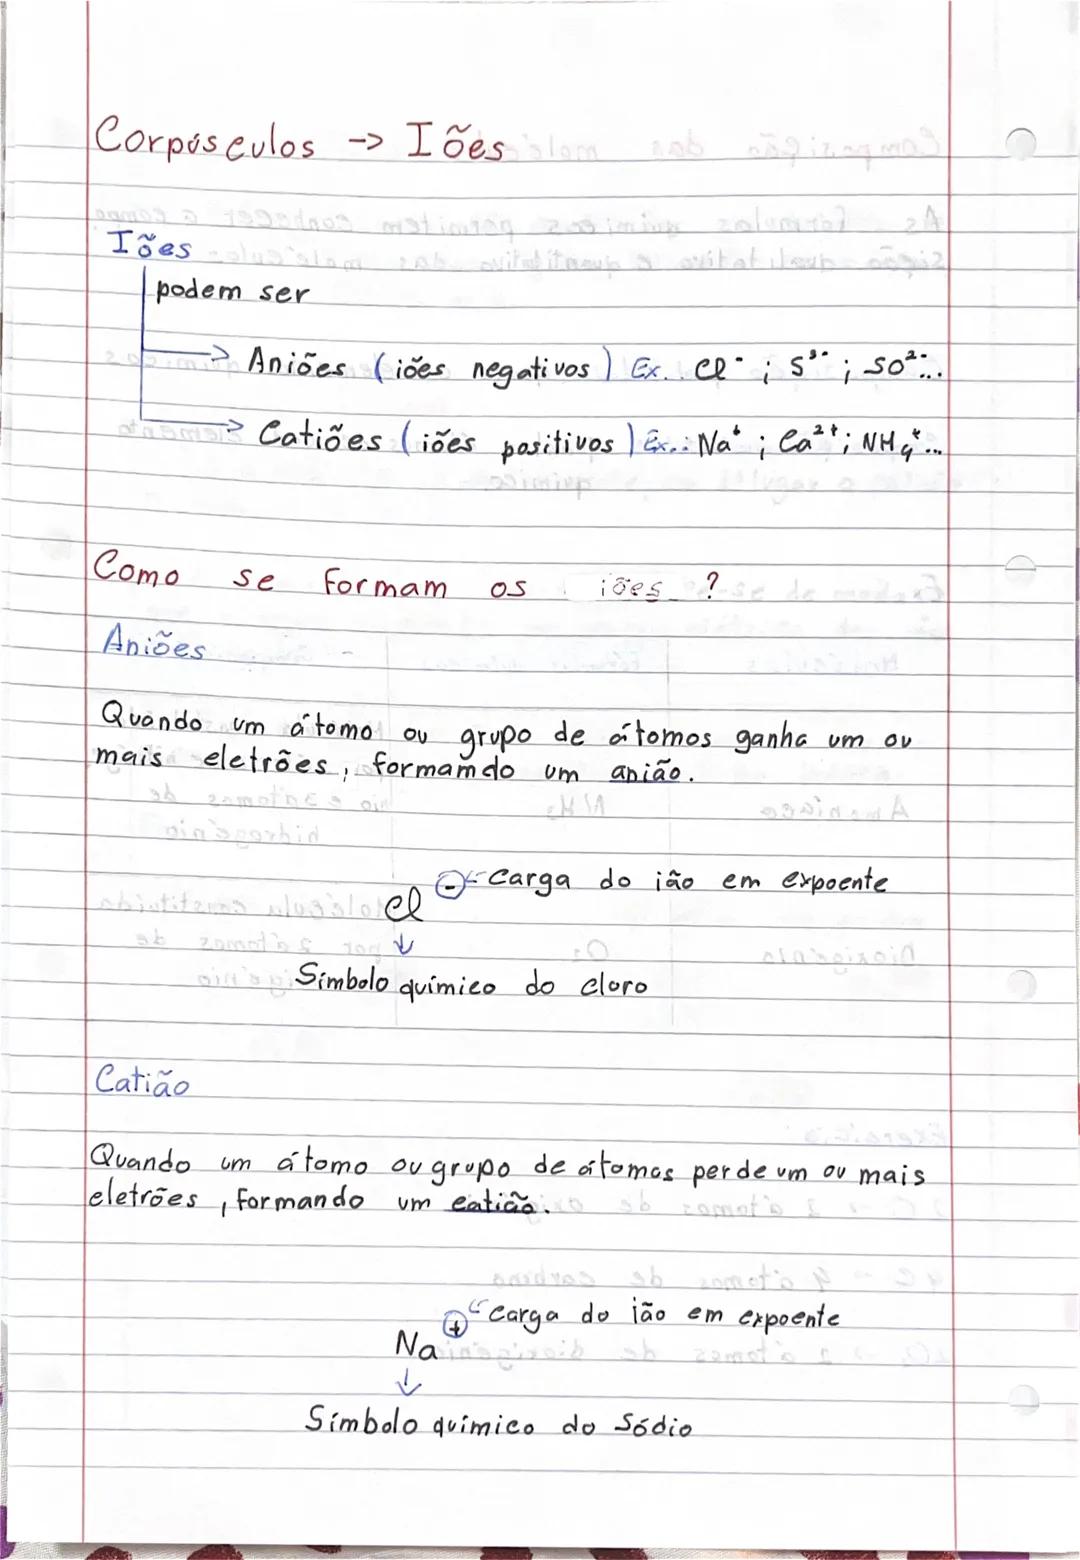 Corpúsculos -> Iões
Iões
podem ser
-> Aniões (iões negativos) Ex.: Cl⁻ ; S³⁻ ; SO²⁻...
-> Catiões (iões positivos) Ex.: Na⁺ ; Ca²⁺; NH₄⁺...
Como se formam os iões ?
Aniões
Quando um átomo ou grupo de átomos ganha um ou
mais eletrões, formamdo um anião.
Cl ⊖ <- carga do ião em expoente
↓
Símbolo químico do cloro
Catião
Quando um átomo ou grupo de átomos perde um ou mais
eletrões, formando um catião.
Na ⊕ <- carga do ião em expoente
↓
Símbolo químico do Sódio